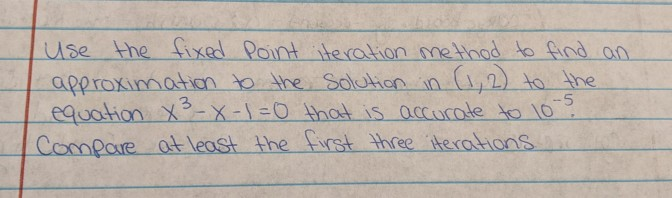 Use the fixed Point iteration method to find an
approximation to the solution in (1,2) to the
equation x³-x-1=0 that is accurate to 10⁻⁵.
Compare at least the first three iterations